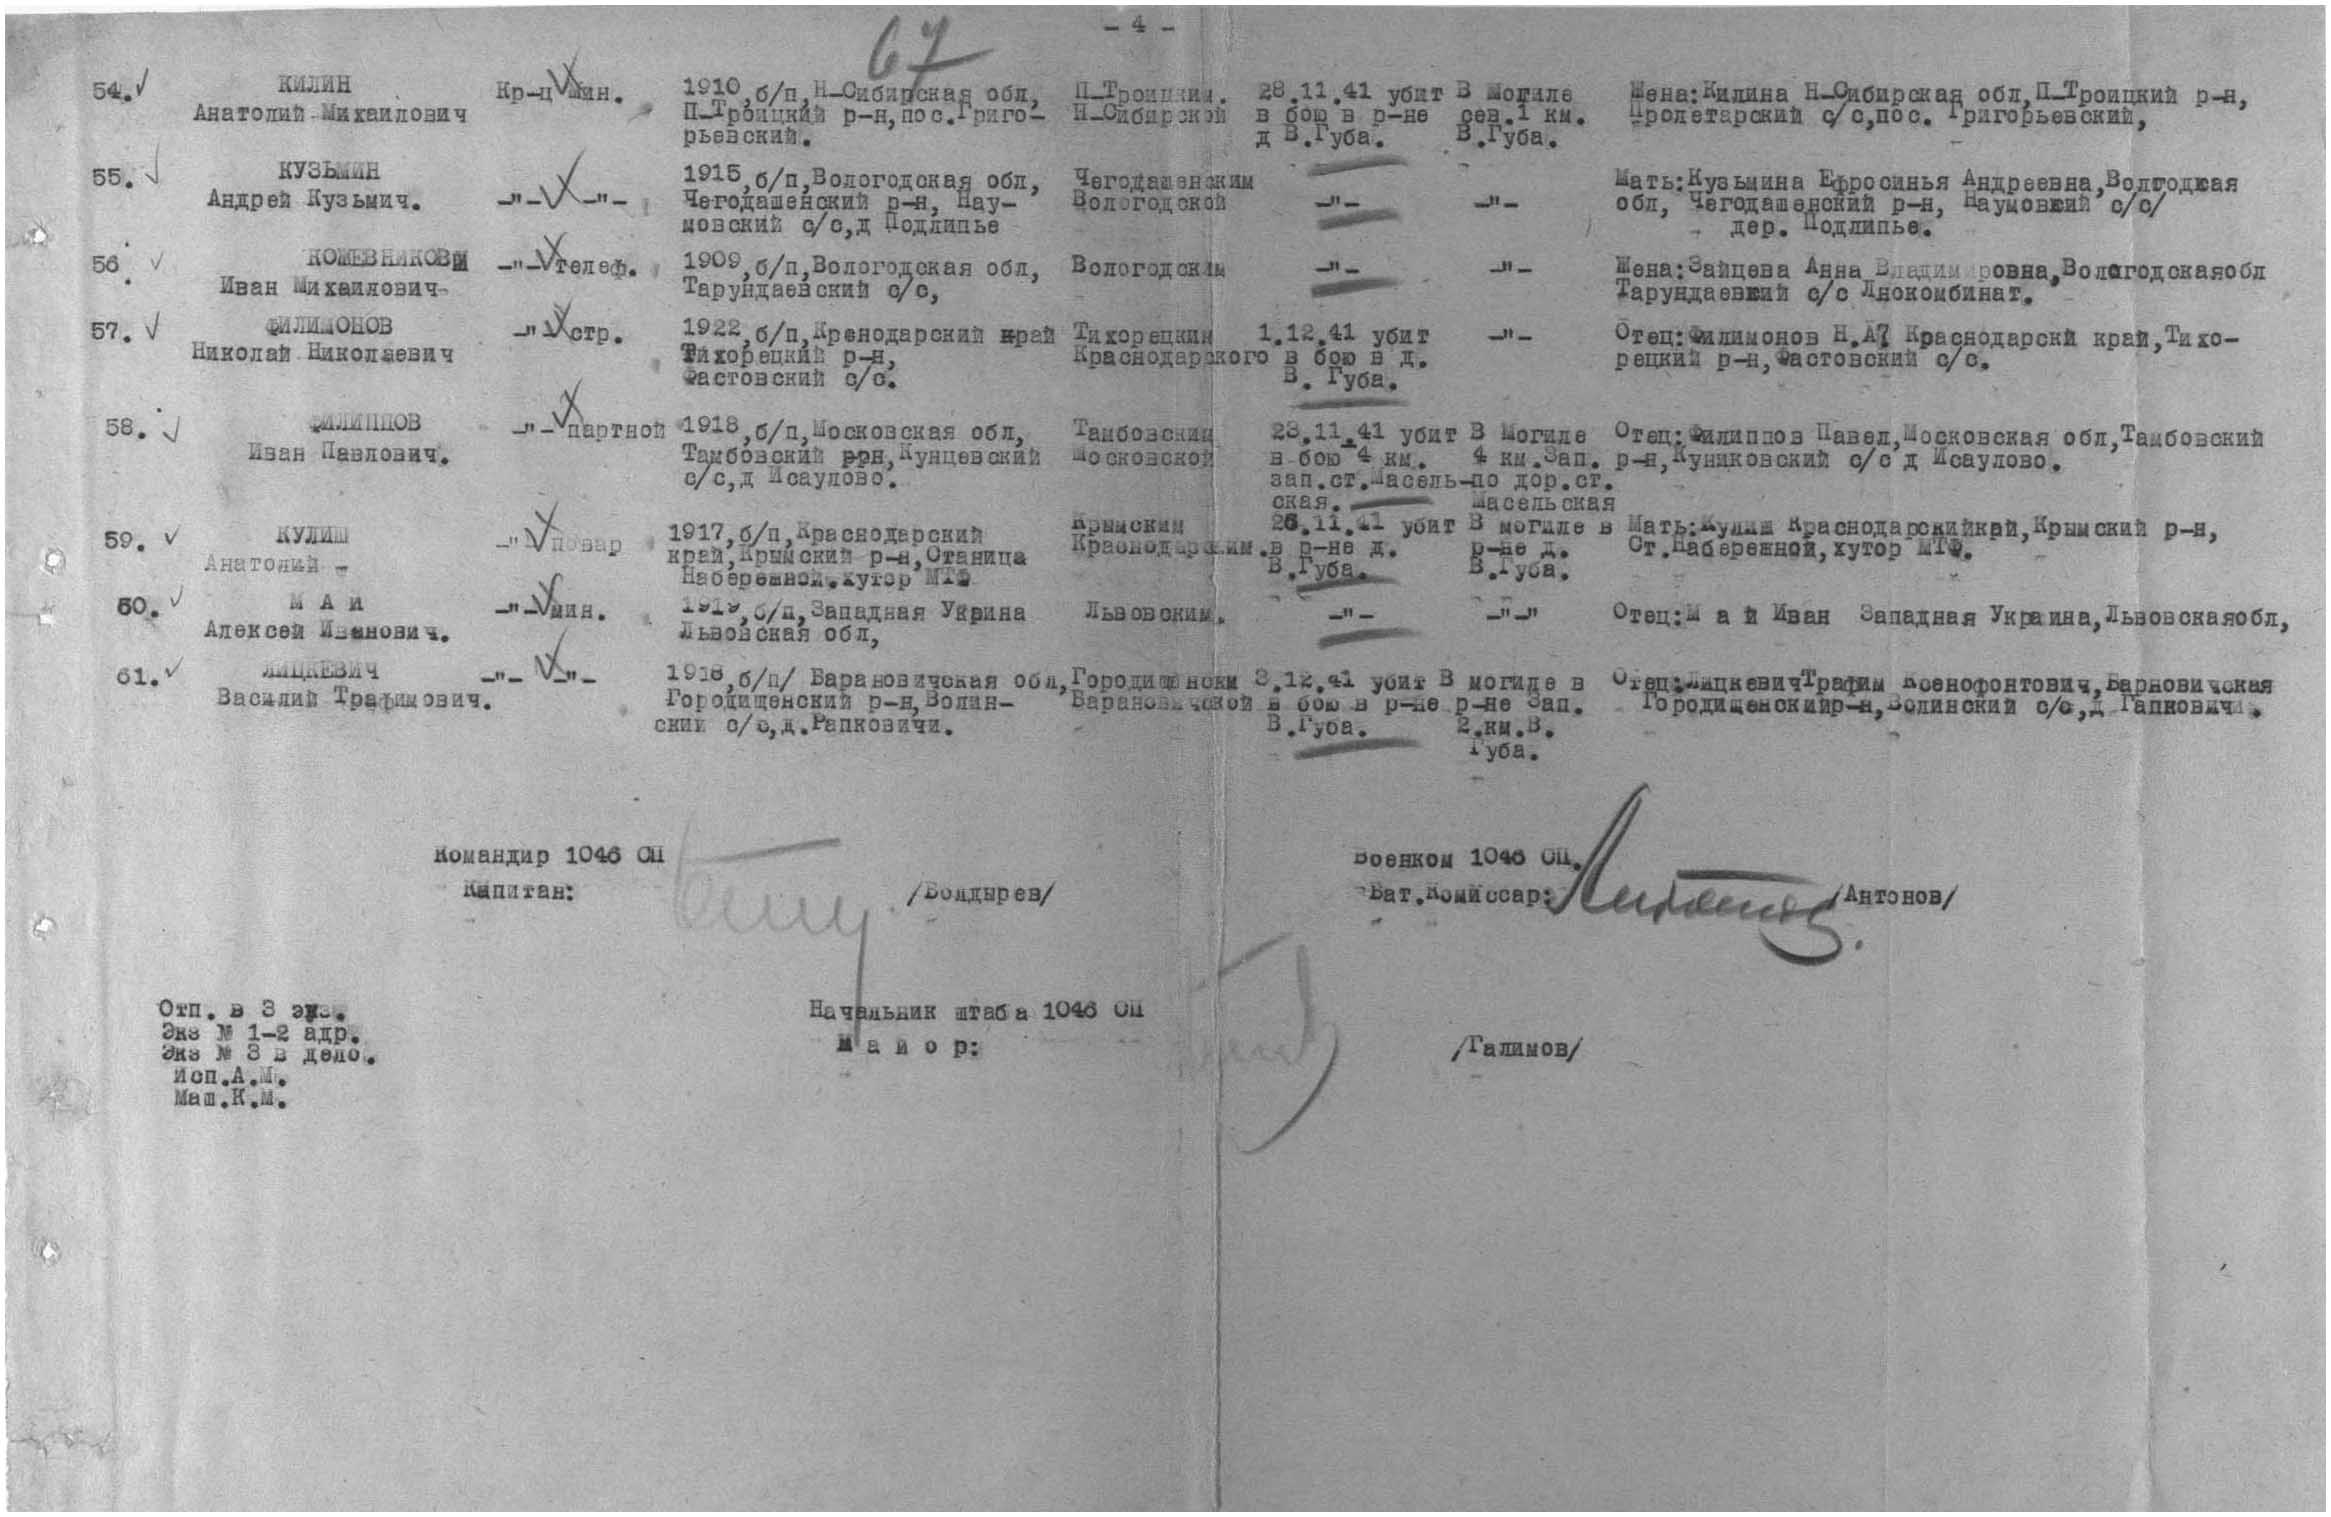 - 4 -
67
54. КИЛИН Кр-ц мин. 1910,б/п,Н-Сибирская обл, П-Троицким. 28.11.41 убит В могиле Жена:Килина Н-Сибирская обл,П-Троицкий р-н,
Анатолий Михаилович П-Троицкий р-н,пос.Григо- Н-Сибирской в бою в р-не сев.1 км. Пролетарский с/с,пос. Григорьевский,
рьевский. д В.Губа. В.Губа.
55. КУЗЬМИН 1915,б/п,Вологодская обл, Чегодашенским Мать:Кузьмина Ефросинья Андреевна,Вологодкая
Андрей Кузьмич. -"- -"- Чегодашенский р-н, Нау- Вологодской -"- -"- обл, Чегодашенский р-н, Наумовкий с/с/
мовский с/с,д Подлипье дер. Подлипье.
56. КОЖЕВНИКОВ -"- телеф. 1909,б/п,Вологодская обл, Вологодским -"- -"- Жена:Зайцева Анна Владимировна,Вологодскаяобл
Иван Михаилович Тарундаевский с/с, Тарундаевкий с/с Лнокомбинат.
57. ФИЛИМОНОВ -"- стр. 1922,б/п,Кренодарский край Тихорецким 1.12.41 убит -"- Отец:Филимонов Н.А. Краснодарскй край,Тихо-
Николай Николаевич Тихорецкий р-н, Краснодарского в бою в д. рецкий р-н,Фастовский с/с.
Фастовский с/с. В. Губа.
58. ФИЛИППОВ -"- партной 1918,б/п,Московская обл, Тамбовским 23.11.41 убит В Могиле Отец:Филиппов Павел,Московская обл,Тамбовский
Иван Павлович. Тамбовский р-н,Кунцевский Московской в бою 4 км. 4 км.Зап. р-н,Куниковский с/с д Исаулово.
с/с,д Исаулово. зап.ст.Масель- по дор.ст.
ская. Масельская
59. КУЛИШ -"- повар 1917,б/п,Краснодарский Крымским 26.11.41 убит В могиле в Мать:Кулиш Краснодарскийкрй,Крымский р-н,
Анатолий - край,Крымский р-н,Станица Краснодарским. в р-не д. р-не д. Ст.Набережной,хутор МТФ.
Набережной.хутор МТФ В.Губа. В.Губа.
60. М А Й -"- мин. 1919,б/п,Западная Украина Львовским. -"- -"-" Отец:М а й Иван Западная Украина,Львовскаяобл,
Алексей Иванович. Львовская обл,
61. ЛИЦКЕВИЧ -"- -"- 1918,б/п/ Барановичская обл, Городищенскм 3.12.41 убит В могиле в Отец:ЛицкевичТрафим Ксенофонтович,Барновичская
Василий Трафимович. Городищенский р-н,Волин- Барановичской в бою в р-не р-не Зап. Городищенскийр-н,Волинский с/с,д Гапковичи.
ский с/с,д.Рапковичи. В.Губа. 2.км.В.
Губа.
Командир 1046 СП Военком 1046 СП.
Капитан: /Болдырев/ Бат.Комиссар: /Антонов/
Отп. в 3 экз. Начальник штаба 1046 СП
Экз № 1-2 адр. М а й о р: /Галимов/
Экз № 3 в дело.
Исп.А.М.
Маш.К.М.